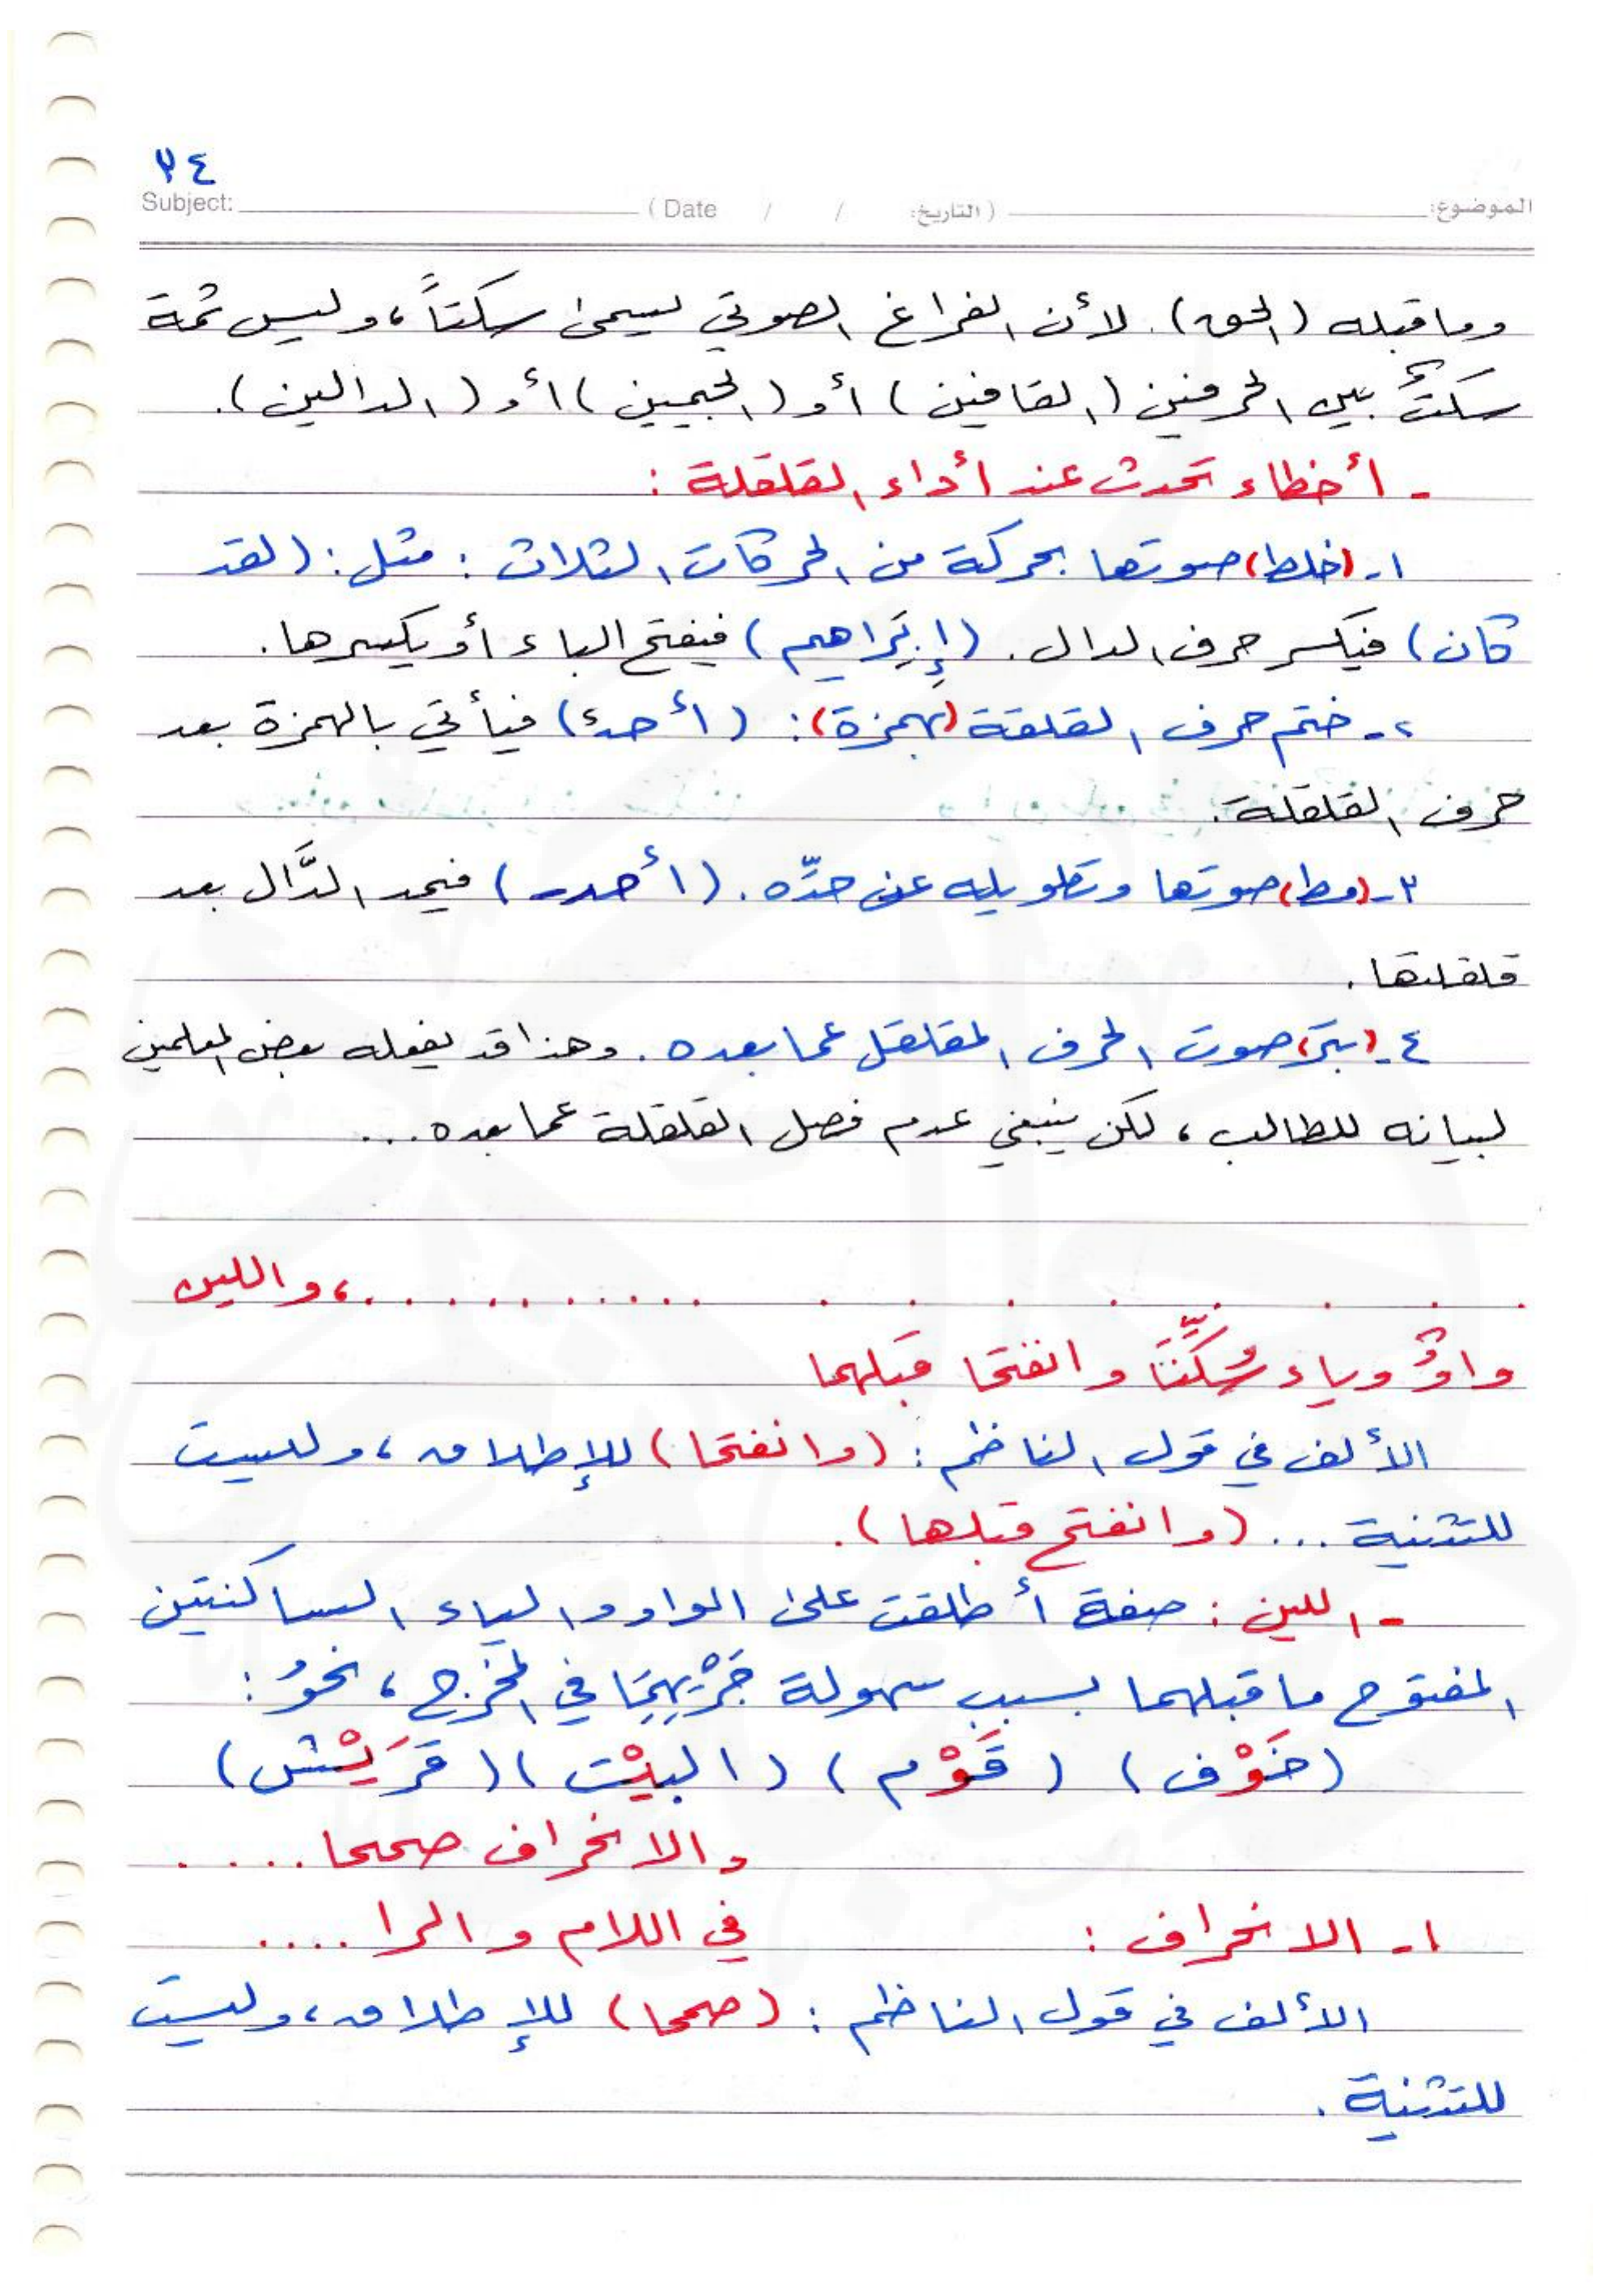 ٣٤
الموضوع: (التاريخ: / / Date ) Subject:
وما قبله (الحق). لأن الفراغ الصوتي يسمى سكتاً، وليس ثمة
سكتٌ بين الحرفين (القافين) أو (الجيمين) أو (الدالين).
- أخطاء تحدث عند أداء القلقلة :
١- (خلط) صوتها بحركة من الحركات الثلاث : مثل : (لقد
كان) فيكسر حرف الدال. (إبراهيم) فيفتح الباء أو يكسرها.
٢- ختم حرف القلقلة (بهمزة): (أحدء) فيأتي بالهمزة بعد
حرف القلقلة.
٣- (مط) صوتها وتطويله عن حدّه. (أحد) فيمد الدَّال بعد
قلقلتها.
٤- (بتر) صوت الحرف المقلقل عما بعده. وهذا قد يفعله بعض المعلمين
لبيانه للطالب، لكن ينبغي عدم فصل القلقلة عما بعده...
. . . . . . . . . . . . . . . .، واللين
واوٌ وياء سُكِّنَا وانفتحا قبلهما
الألف في قول الناظم : (وانفتحا) للإطلاق، وليست
للتثنية ... (وانفتح قبلها).
- اللين : صفة أطلقت على الواو والياء الساكنتين
المفتوح ما قبلهما بسبب سهولة جَرْيِهِمَا في المخرج، نحوُ :
(خَوْف) (قَوْم) (البيْت) (قرَيْش)
والانحراف صححا .....
١- الانحراف : في اللام والرا ....
الألف في قول الناظم : (صححا) للإطلاق، وليست
للتثنية.